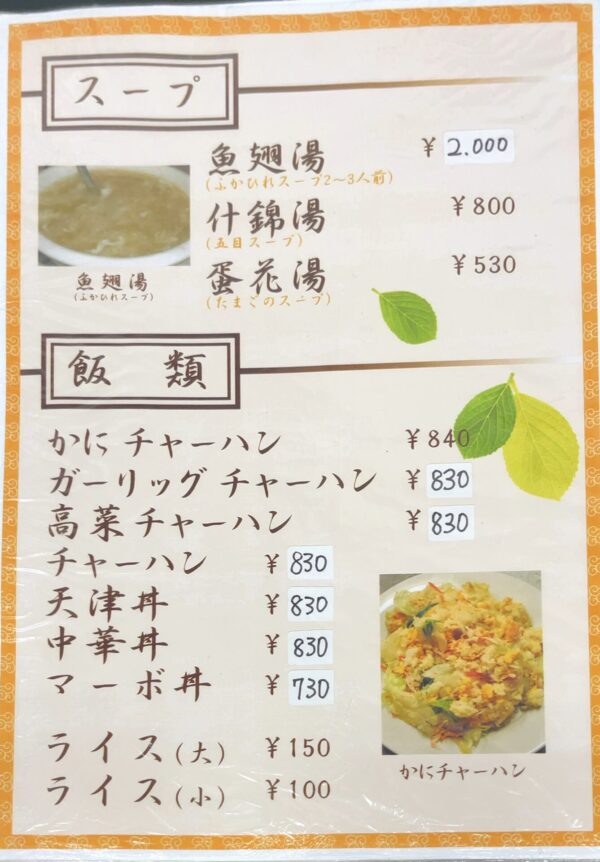 スープ
魚翅湯 ¥2.000
(ふかひれスープ2〜3人前)
什錦湯 ¥800
(五目スープ)
蛋花湯 ¥530
(たまごのスープ)
魚翅湯
(ふかひれスープ)
飯 類
かに チャーハン ¥840
ガーリッグ チャーハン ¥830
高菜 チャーハン ¥830
チャーハン ¥830
天津丼 ¥830
中華丼 ¥830
マーボ丼 ¥730
ライス(大) ¥150
ライス(小) ¥100
かにチャーハン